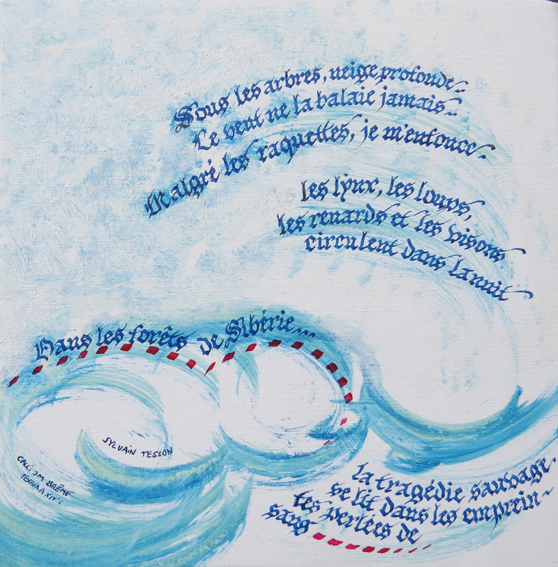 Sous les arbres, neige profonde.
Le vent ne la balaie jamais.
Malgré les raquettes, je m'enfonce.
les lynx, les loups,
les renards et les visons
circulent dans la nuit
Dans les forêts de Sibérie...
SYLVAIN TESSON
la tragédie sauvage
se lit dans les emprein-
tes perlées de
sang